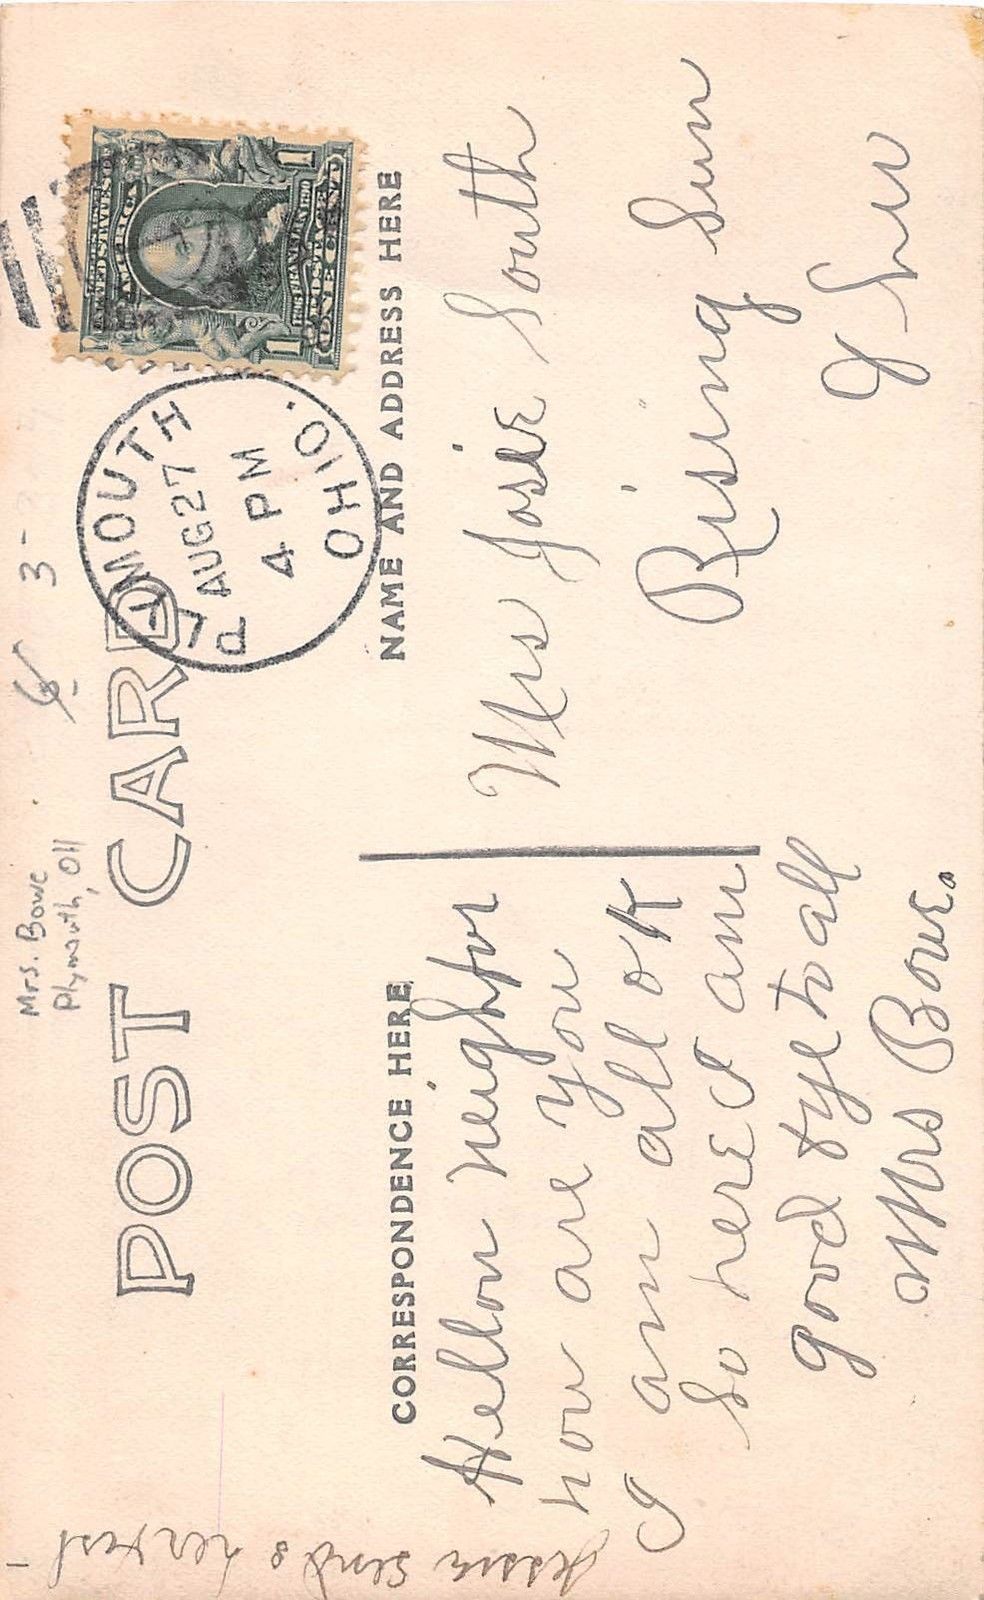 Mrs. Bowe
Plymouth, OH
3-
POST CARD
PLYMOUTH
AUG 27
4 PM
OHIO.
UNITED STATES OF
AMERICA
1706 FRANKLIN 1790
POSTAGE
1 ONE CENT 1
CORRESPONDENCE HERE
NAME AND ADDRESS HERE
Hellow neighbor
how are you
I am all ok
so here I am
good bye to all
Mrs Bowe.
Mrs Josie South
Rising Sun
Jessie sends her